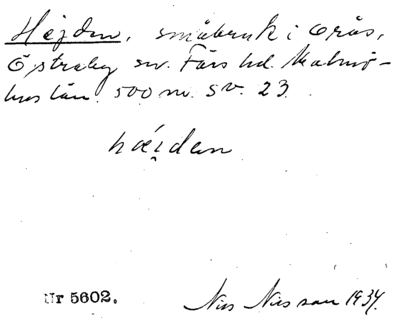 Hejden, småbruk i Orås,
Östraby sn. Färs hd. Malmö-
hus län. 500 m. SV. 23.
hæi̯dan
Nr 5602.
Nils Nilsson 1934.